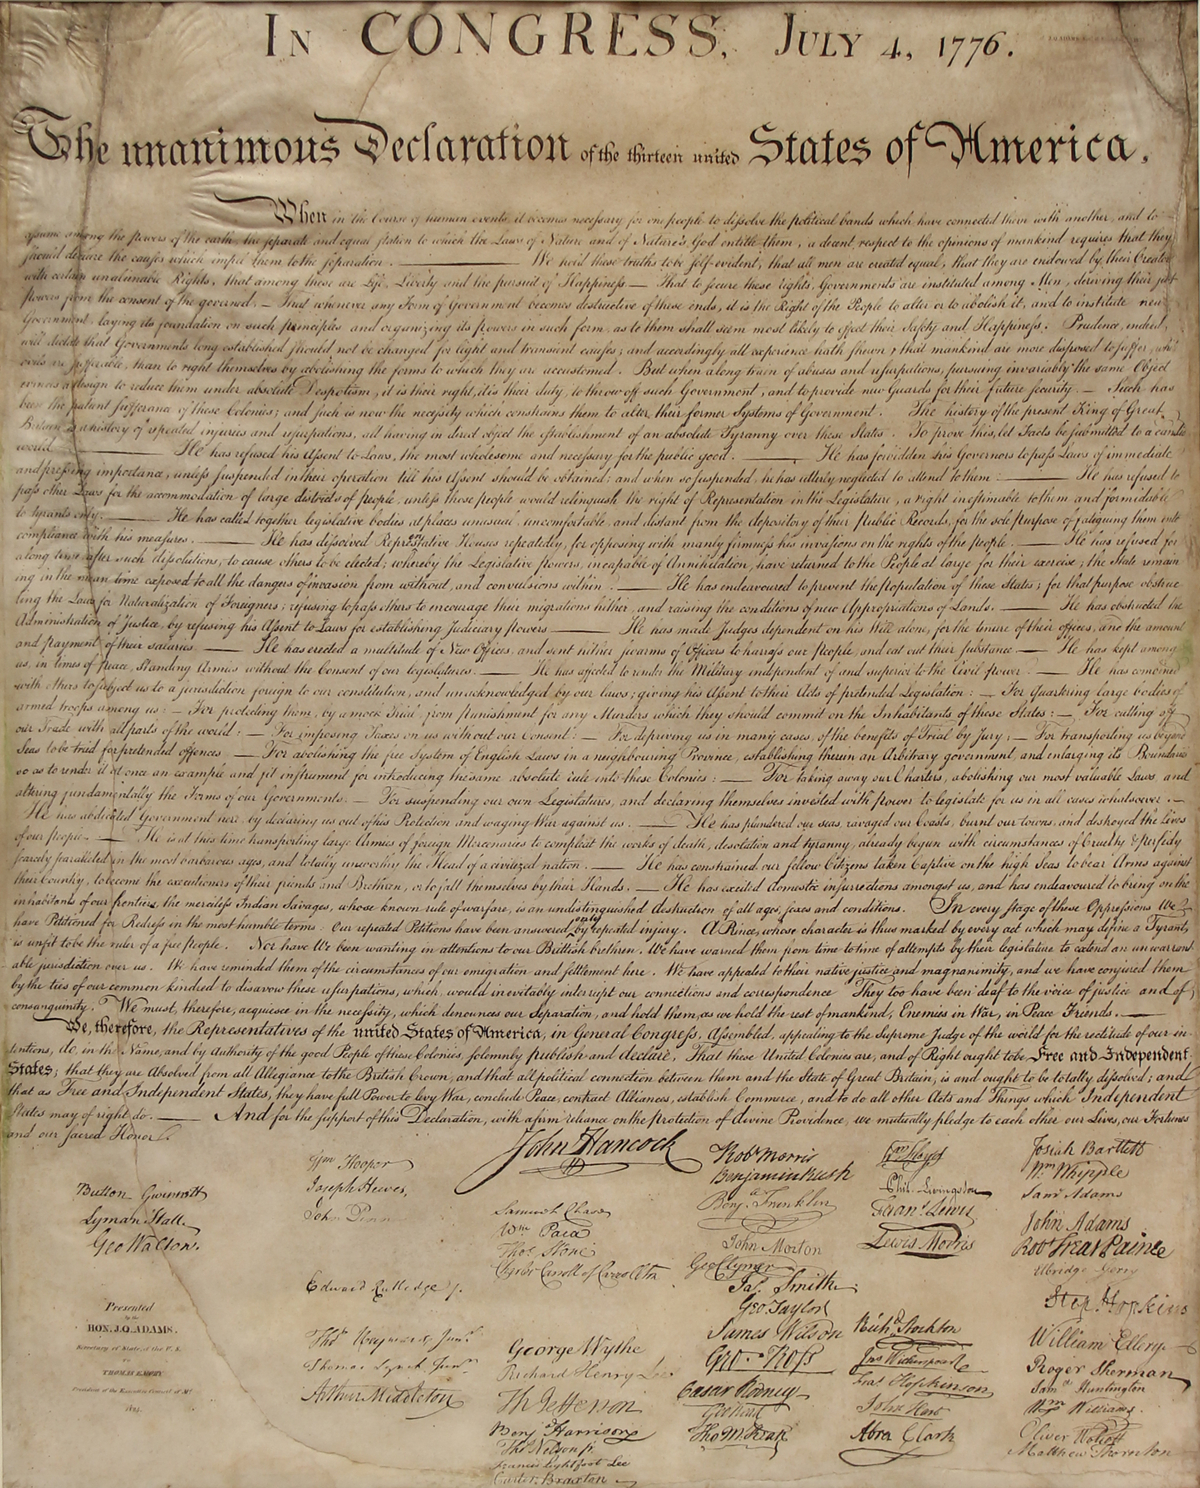 In CONGRESS, July 4, 1776.
The unanimous Declaration of the thirteen united States of America.
When in the Course of human events, it becomes necessary for one people to dissolve the political bands which have connected them with another, and to
assume among the powers of the earth, the separate and equal station to which the Laws of Nature and of Nature's God entitle them, a decent respect to the opinions of mankind requires that they
should declare the causes which impel them to the separation. — We hold these truths to be self-evident, that all men are created equal, that they are endowed by their Creator
with certain unalienable Rights, that among these are Life, Liberty and the pursuit of Happiness — That to secure these rights, Governments are instituted among Men, deriving their just
powers from the consent of the governed, — That whenever any Form of Government becomes destructive of these ends, it is the Right of the People to alter or to abolish it, and to institute new
Government, laying its foundation on such principles and organizing its powers in such form, as to them shall seem most likely to effect their Safety and Happiness. Prudence, indeed,
will dictate that Governments long established should not be changed for light and transient causes; and accordingly all experience hath shewn, that mankind are more disposed to suffer, while
evils are sufferable, than to right themselves by abolishing the forms to which they are accustomed. But when a long train of abuses and usurpations, pursuing invariably the same Object
evinces a design to reduce them under absolute Despotism, it is their right, it is their duty, to throw off such Government, and to provide new Guards for their future security. — Such has
been the patient sufferance of these Colonies; and such is now the necessity which constrains them to alter their former Systems of Government. The history of the present King of Great
Britain is a history of repeated injuries and usurpations, all having in direct object the establishment of an absolute Tyranny over these States. To prove this, let Facts be submitted to a candid
world. — He has refused his Assent to Laws, the most wholesome and necessary for the public good. — He has forbidden his Governors to pass Laws of immediate
and pressing importance, unless suspended in their operation till his Assent should be obtained; and when so suspended, he has utterly neglected to attend to them. — He has refused to
pass other Laws for the accommodation of large districts of people, unless those people would relinquish the right of Representation in the Legislature, a right inestimable to them and formidable
to tyrants only. — He has called together legislative bodies at places unusual, uncomfortable, and distant from the depository of their Public Records, for the sole purpose of fatiguing them into
compliance with his measures. — He has dissolved Representative Houses repeatedly, for opposing with manly firmness his invasions on the rights of the people. — He has refused for
a long time, after such dissolutions, to cause others to be elected; whereby the Legislative powers, incapable of Annihilation, have returned to the People at large for their exercise; the State remain
ing in the mean time exposed to all the dangers of invasion from without, and convulsions within. — He has endeavoured to prevent the population of these States; for that purpose obstruc
ting the Laws for Naturalization of Foreigners; refusing to pass others to encourage their migrations hither, and raising the conditions of new Appropriations of Lands. — He has obstructed the
Administration of Justice, by refusing his Assent to Laws for establishing Judiciary powers — He has made Judges dependent on his Will alone, for the tenure of their offices, and the amount
and payment of their salaries. — He has erected a multitude of New Offices, and sent hither swarms of Officers to harrass our people, and eat out their substance. — He has kept among
us, in times of peace, Standing Armies without the Consent of our legislatures. — He has affected to render the Military independent of and superior to the Civil power. — He has combined
with others to subject us to a jurisdiction foreign to our constitution, and unacknowledged by our laws; giving his Assent to their Acts of pretended Legislation: — For Quartering large bodies of
armed troops among us: — For protecting them, by a mock Trial, from punishment for any Murders which they should commit on the Inhabitants of these States: — For cutting off
our Trade with all parts of the world: — For imposing Taxes on us without our Consent: — For depriving us in many cases, of the benefits of Trial by Jury: — For transporting us beyond
Seas to be tried for pretended offences — For abolishing the free System of English Laws in a neighbouring Province, establishing therein an Arbitrary government, and enlarging its Boundaries
so as to render it at once an example and fit instrument for introducing the same absolute rule into these Colonies: — For taking away our Charters, abolishing our most valuable Laws, and
altering fundamentally the Forms of our Governments: — For suspending our own Legislatures, and declaring themselves invested with power to legislate for us in all cases whatsoever. —
He has abdicated Government here, by declaring us out of his Protection and waging War against us. — He has plundered our seas, ravaged our Coasts, burnt our towns, and destroyed the lives
of our people. — He is at this time transporting large Armies of foreign Mercenaries to compleat the works of death, desolation and tyranny, already begun with circumstances of Cruelty & perfidy
scarcely paralleled in the most barbarous ages, and totally unworthy the Head of a civilized nation. — He has constrained our fellow Citizens taken Captive on the high Seas to bear Arms against
their Country, to become the executioners of their friends and Brethren, or to fall themselves by their Hands. — He has excited domestic insurrections amongst us, and has endeavoured to bring on the
inhabitants of our frontiers, the merciless Indian Savages, whose known rule of warfare, is an undistinguished destruction of all ages, sexes and conditions. In every stage of these Oppressions We
have Petitioned for Redress in the most humble terms: Our repeated Petitions have been answered only by repeated injury. A Prince, whose character is thus marked by every act which may define a Tyrant,
is unfit to be the ruler of a free people. Nor have We been wanting in attentions to our Brittish brethren. We have warned them from time to time of attempts by their legislature to extend an unwarrant
able jurisdiction over us. We have reminded them of the circumstances of our emigration and settlement here. We have appealed to their native justice and magnanimity, and we have conjured them
by the ties of our common kindred to disavow these usurpations, which, would inevitably interrupt our connections and correspondence They too have been deaf to the voice of justice and of
consanguinity. We must, therefore, acquiesce in the necessity, which denounces our Separation, and hold them, as we hold the rest of mankind, Enemies in War, in Peace Friends. —
We, therefore, the Representatives of the united States of America, in General Congress, Assembled, appealing to the Supreme Judge of the world for the rectitude of our in
tentions, do, in the Name, and by Authority of the good People of these Colonies, solemnly publish and declare, That these United Colonies are, and of Right ought to be Free and Independent
States; that they are Absolved from all Allegiance to the British Crown, and that all political connection between them and the State of Great Britain, is and ought to be totally dissolved; and
that as Free and Independent States, they have full Power to levy War, conclude Peace, contract Alliances, establish Commerce, and to do all other Acts and Things which Independent
States may of right do. — And for the support of this Declaration, with a firm reliance on the protection of divine Providence, we mutually pledge to each other our Lives, our Fortunes
and our sacred Honor.
Button Gwinnett
Lyman Hall
Geo Walton.
Wm Hooper
Joseph Hewes,
John Penn
Edward Rutledge
Thos Heyward Junr
Thomas Lynch Junr
Arthur Middleton
John Hancock
Samuel Chase
Wm Paca
Thos Stone
Charles Carroll of Carrollton
George Wythe
Richard Henry Lee
Th Jefferson
Benja Harrison
Thos Nelson jr.
Francis Lightfoot Lee
Carter Braxton
Robt Morris
Benjamin Rush
Benja Franklin
John Morton
Geo Clymer
Jas Smith
Geo. Taylor
James Wilson
Geo. Ross
Caesar Rodney
Geo Read
Tho M:Kean
Wm Floyd
Phil. Livingston
Frans Lewis
Lewis Morris
Richd Stockton
Jno Witherspoon
Fras Hopkinson
John Hart
Abra Clark
Josiah Bartlett
Wm Whipple
Saml Adams
John Adams
Robt Treat Paine
Elbridge Gerry
Step. Hopkins
William Ellery
Roger Sherman
Saml Huntington
Wm Williams
Oliver Wolcott
Matthew Thornton
Presented
by the
HON. J.Q. ADAMS.
Secretary of State of the U.S.
TO